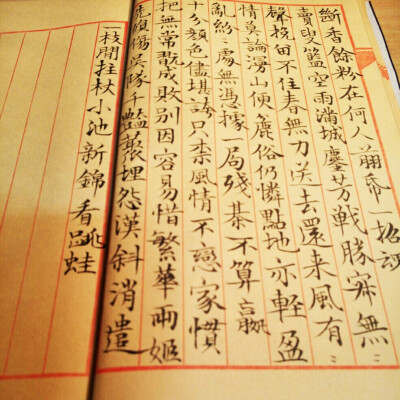 斷香餘粉在何人翦帋一招詞
賣叟籃空雨滿城塵芳戰勝寂無
聲挽留不住春無力送去還来風有
情莫論漫山便麤俗仍憐點地亦輕盈
亂紛〻處無憑據局殘棊不算嬴
十分顏色儘堪誇只柰風情不戀家慣
把無常戲成敗別因容易惜繁華兩姬
先殞傷吳隊千艷叢埋怨漢斜消遣
一枝閒拄杖小池新錦看跳蛙